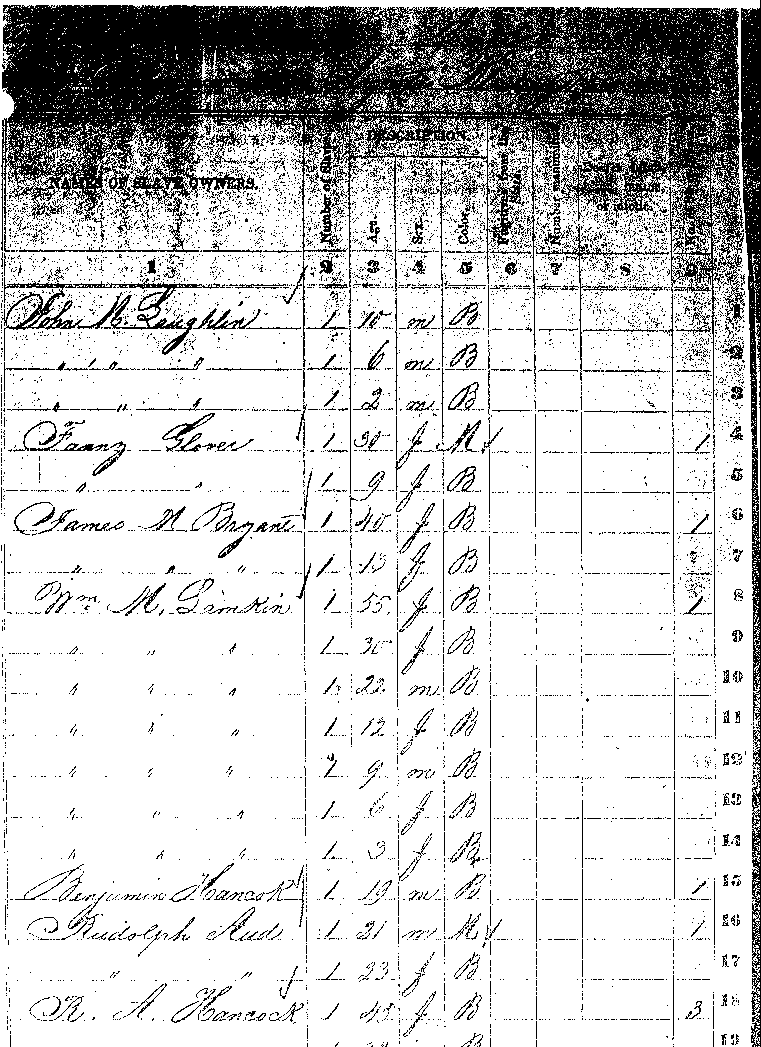 DESCRIPTION.
NAMES OF SLAVE OWNERS. Number of Slaves. Age. Sex. Color. Fugitives from the State. Number manumitted.
1 2 3 4 5 6 7 8 9
John M. Laughlin 1 10 m B 1
" " " 1 6 m B 2
" " " 1 2 m B 3
Fanny Glover 1 30 f M 1 4
" " 1 9 f B 5
James M Bryant 1 40 f B 1 6
" " " 1 13 f B 7
Wm M. Lamkin 1 55 f B 1 8
" " " 1 30 f B 9
" " " 1 22 m B 10
" " " 1 12 f B 11
" " " 1 9 m B 12
" " " 1 6 f B 13
" " " 1 3 f B 14
Benjamin Hancok 1 19 m B 1 15
Rudolph Aud 1 21 m M 1 16
" " 1 23 f B 17
R. A. Hancock 1 45 f B 3 18
B 19